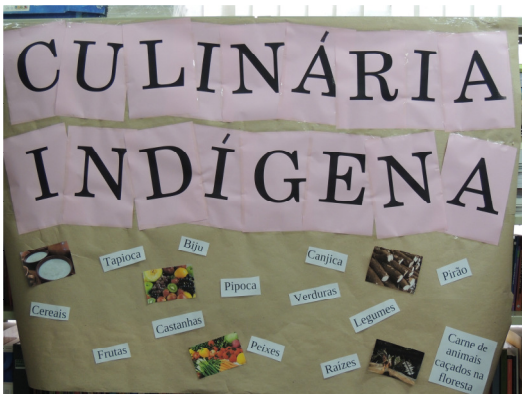 CULINÁRIA
INDÍGENA
Tapioca
Biju
Canjica
Pirão
Pipoca
Verduras
Cereais
Castanhas
Legumes
Frutas
Peixes
Raízes
Carne de
animais
caçados na
floresta